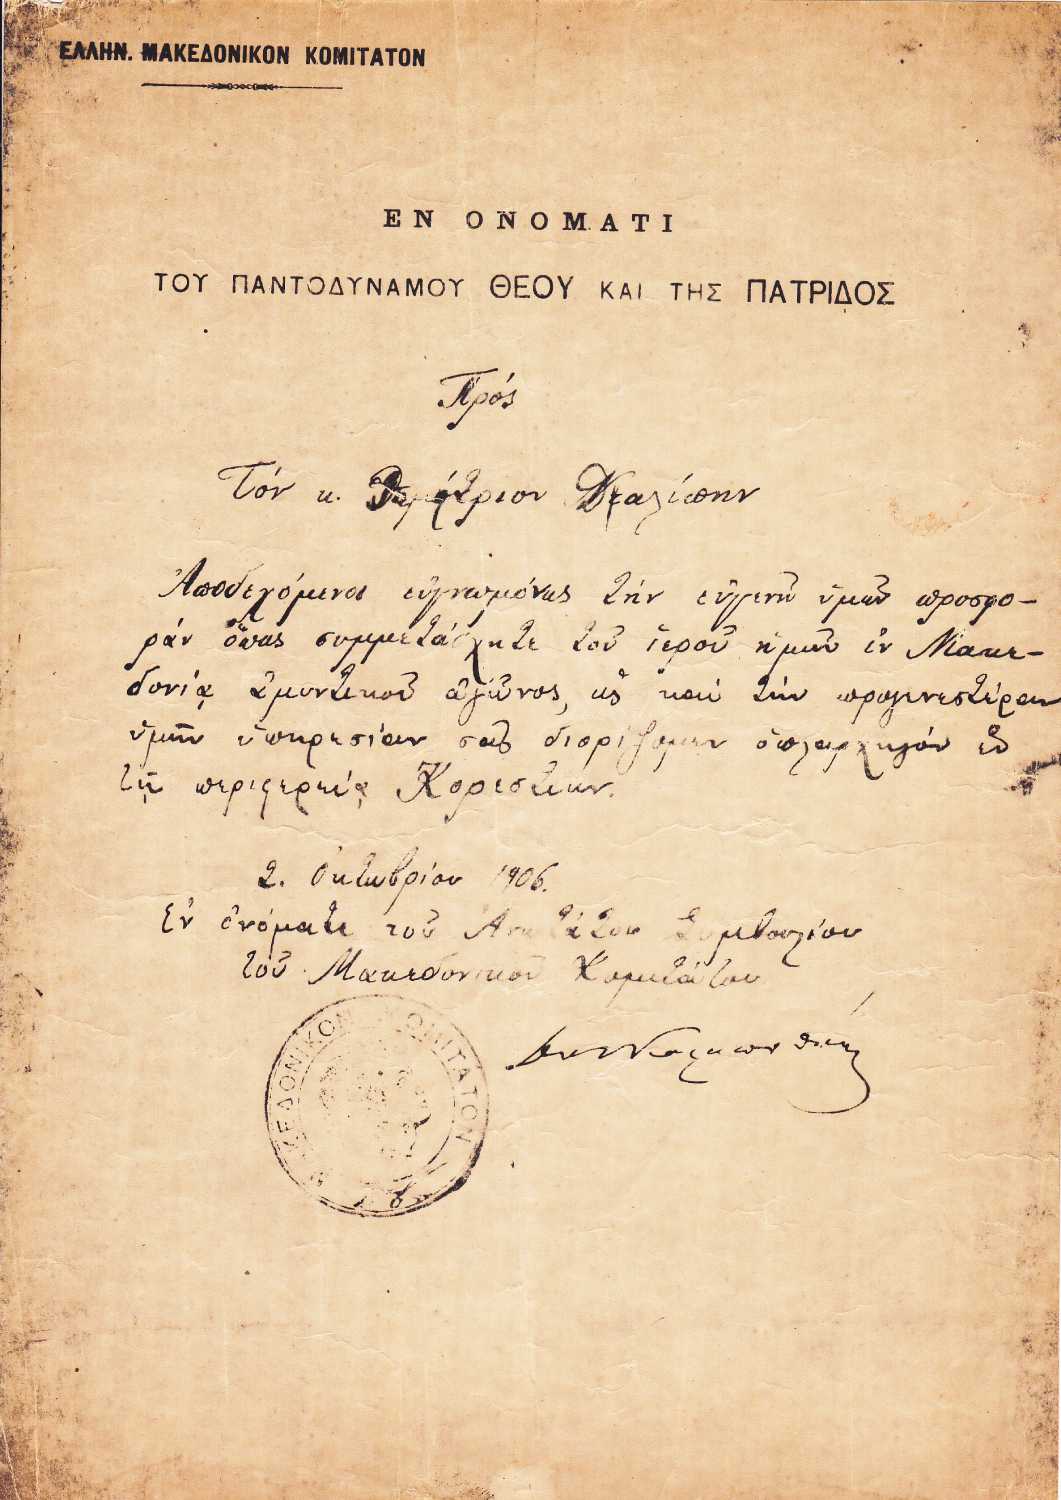 ΕΛΛΗΝ. ΜΑΚΕΔΟΝΙΚΟΝ ΚΟΜΙΤΑΤΟΝ
ΕΝ ΟΝΟΜΑΤΙ
ΤΟΥ ΠΑΝΤΟΔΥΝΑΜΟΥ ΘΕΟΥ ΚΑΙ ΤΗΣ ΠΑΤΡΙΔΟΣ
Πρός
Τόν κ. Δημήτριον Νταλίπην
Ἀποδεχόμενοι εὐγνωμόνως τήν εὐγενῆ ὑμῶν προσφο-
ράν ὅπως συμμετάσχητε τοῦ ἱεροῦ ἡμῶν ἐν Μακε-
δονίᾳ ἀμυντικοῦ ἀγῶνος, ὡς καί τήν προγενεστέραν
ὑμῶν ὑπηρεσίαν σᾶς διορίζομεν ὁπλαρχηγόν ἐν
τῇ περιφερείᾳ Κορεστίων.
2. Ὀκτωβρίου 1906.
Ἐν ὀνόματι τοῦ Ἀνωτάτου Συμβουλίου
τοῦ Μακεδονικοῦ Κομιτάτου
ΜΑΚΕΔΟΝΙΚΟΝ ΚΟΜΙΤΑΤΟΝ